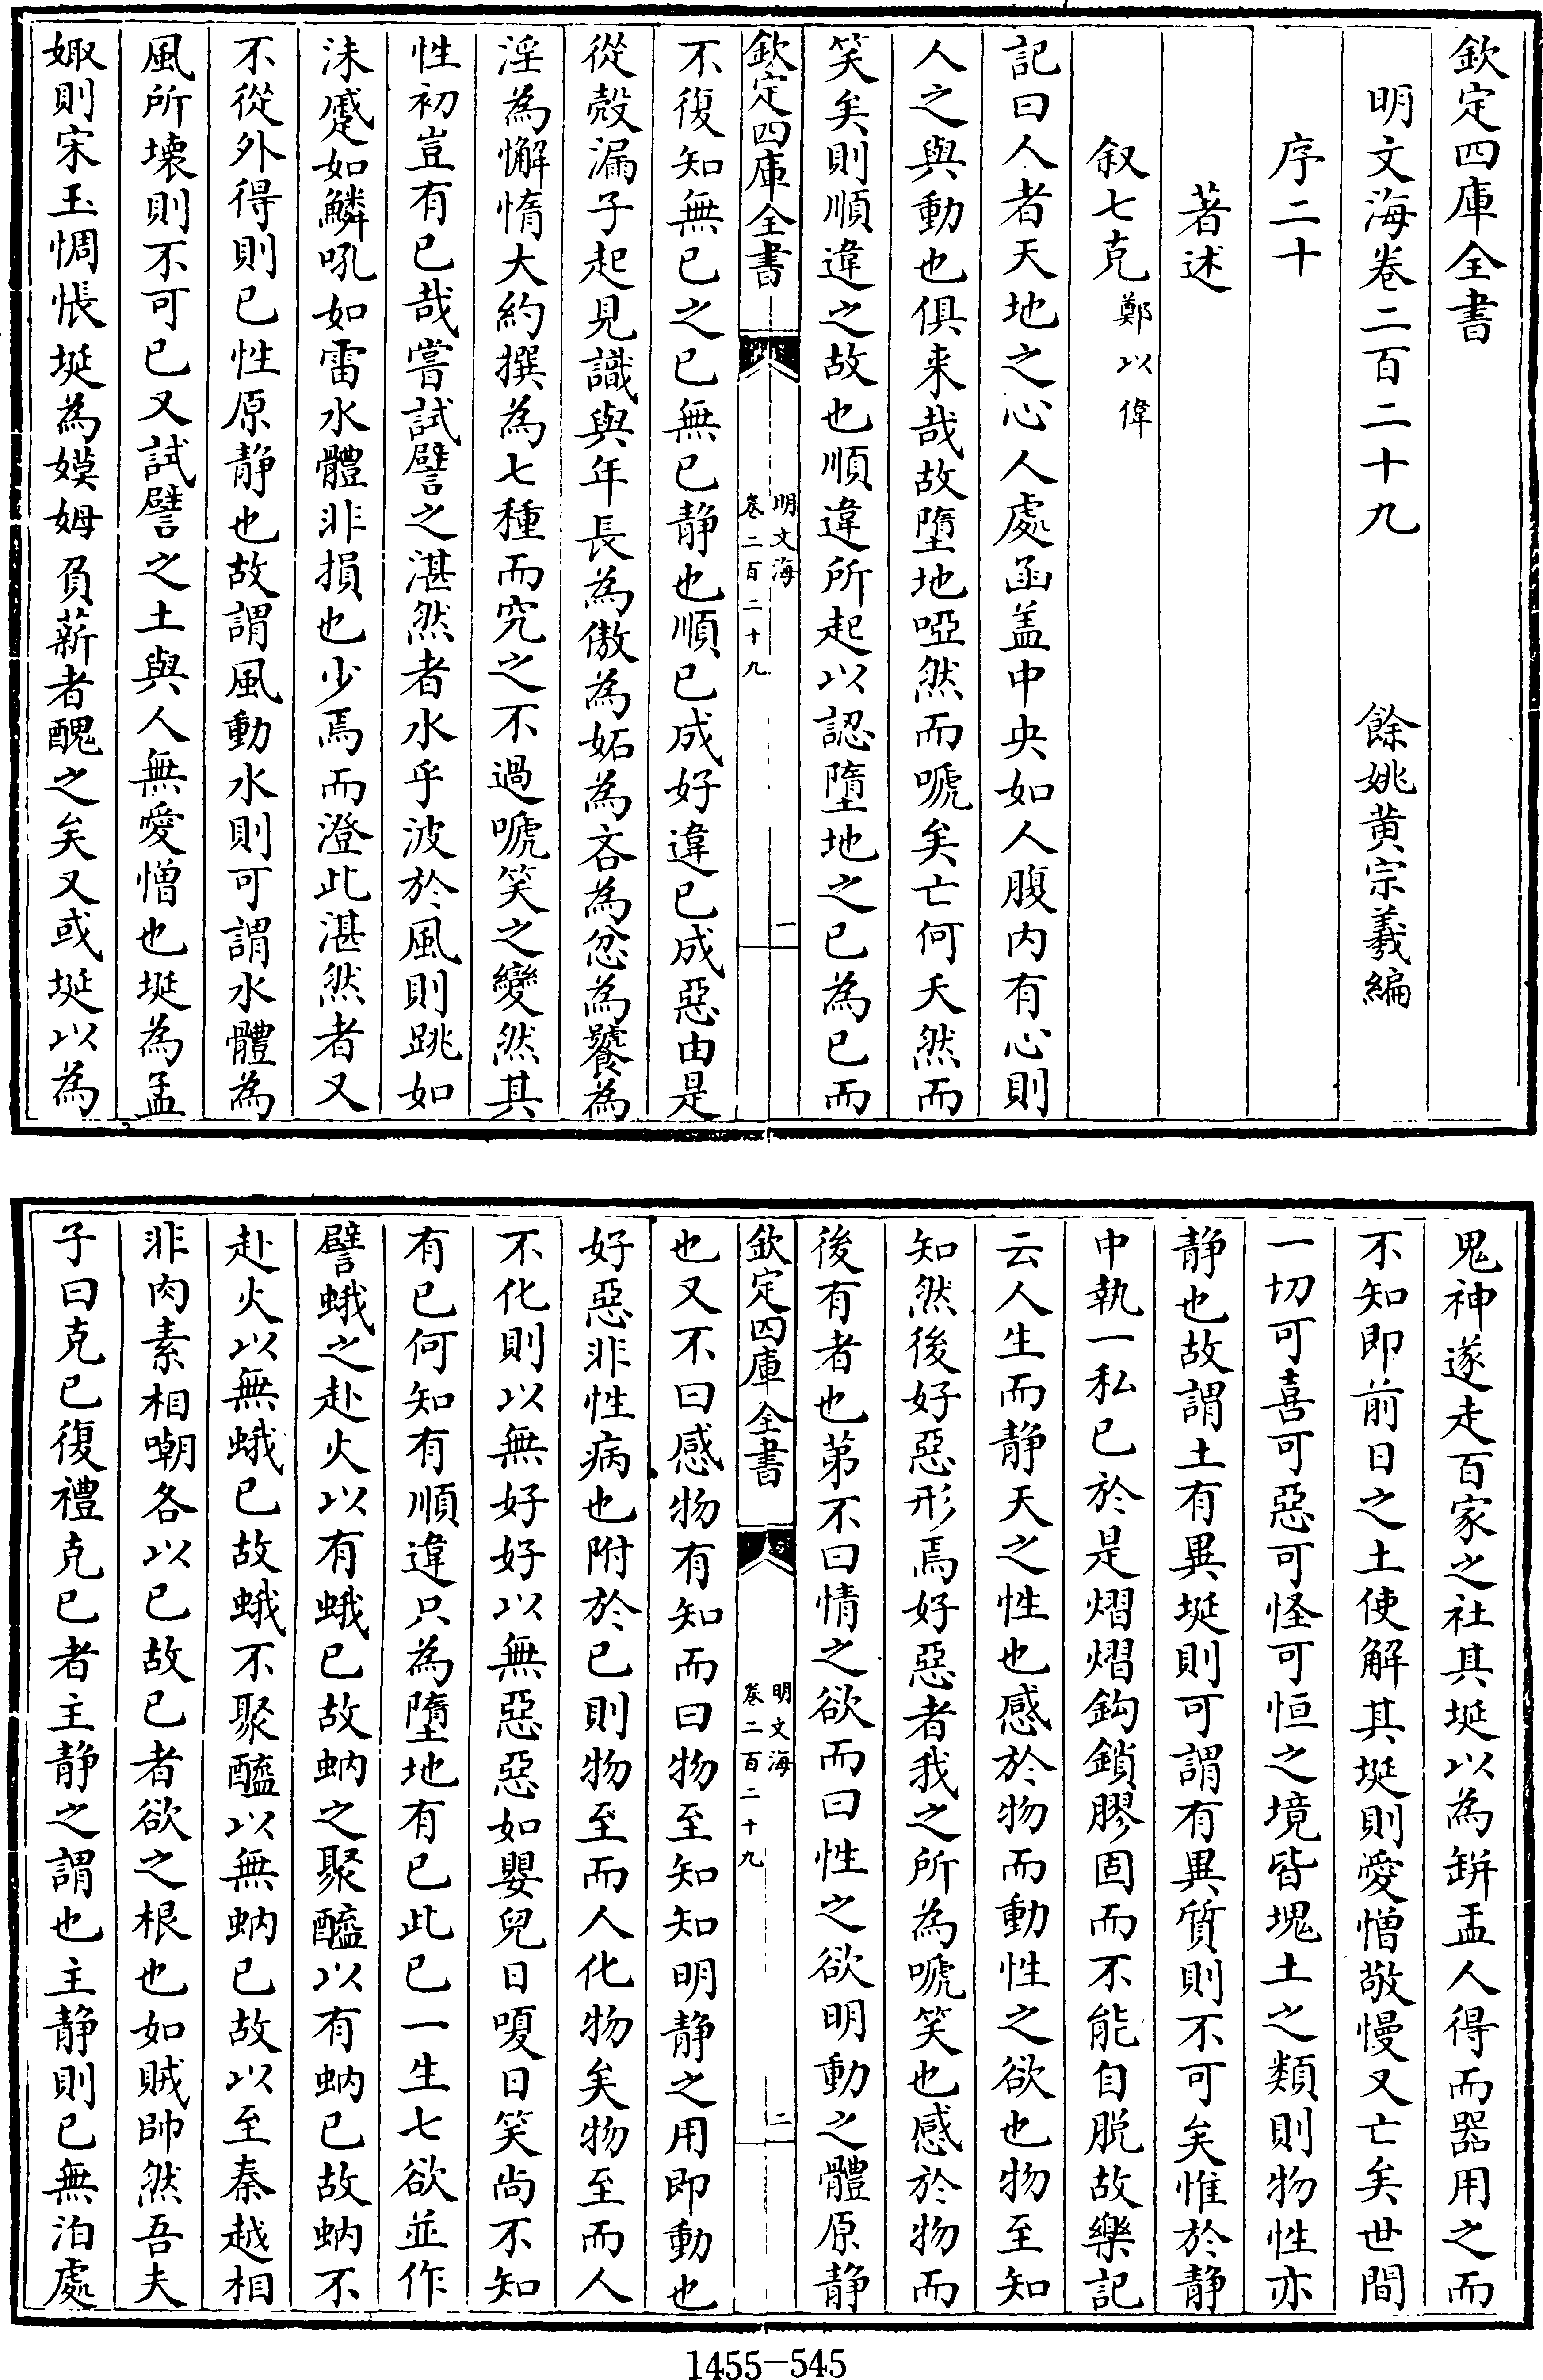 欽定四庫全書
明文海卷二百二十九　餘姚黄宗羲編
序二十
著述
叙七克鄭以偉
記曰人者天地之心人處函盖中央如人腹内有心則
人之與動也俱来哉故墮地啞然而唬矣亡何夭然而
笑矣則順違之故也順違所起以認墮地之已為已而
欽定四庫全書
明文海
卷二百二十九
一
不復知無已之已無已静也順已成好違已成惡由是
從殻漏子起見識與年長為傲為妬為吝為忿為饕為
淫為懈惰大約撰為七種而究之不過唬笑之變然其
性初豈有已哉嘗試譬之湛然者水乎波於風則跳如
沫蹙如鱗吼如雷水體非損也少焉而澄此湛然者又
不從外得則已性原静也故謂風動水則可謂水體為
風所壊則不可已又試譬之土與人無愛憎也埏為孟
娵則宋玉惆悵埏為嫫姆負薪者醜之矣又或埏以為
鬼神遂走百家之社其埏以為缾盂人得而器用之而
不知即前日之土使解其埏則愛憎敬慢又亡矣世間
一切可喜可惡可怪可恒之境皆塊土之類則物性亦
静也故謂土有異埏則可謂有異質則不可矣惟於静
中執一私已於是熠熠鈎鎖膠固而不能自脱故樂記
云人生而静天之性也感於物而動性之欲也物至知
知然後好惡形焉好惡者我之所為唬笑也感於物而
後有者也第不曰情之欲而曰性之欲明動之體原静
欽定四庫全書
明文海
卷二百二十九
二
也又不曰感物有知而曰物至知知明静之用即動也
好惡非性病也附於已則物至而人化物矣物至而人
不化則以無好好以無惡惡如嬰兒日嗄日笑尚不知
有已何知有順違只為墮地有已此已一生七欲並作
譬蛾之赴火以有蛾已故蚋之聚醯以有蚋已故蚋不
赴火以無蛾已故蛾不聚醯以無蚋已故以至秦越相
非肉素相嘲各以已故已者欲之根也如賊帥然吾夫
子曰克已復禮克已者主静之謂也主静則已無泊處
1455-545